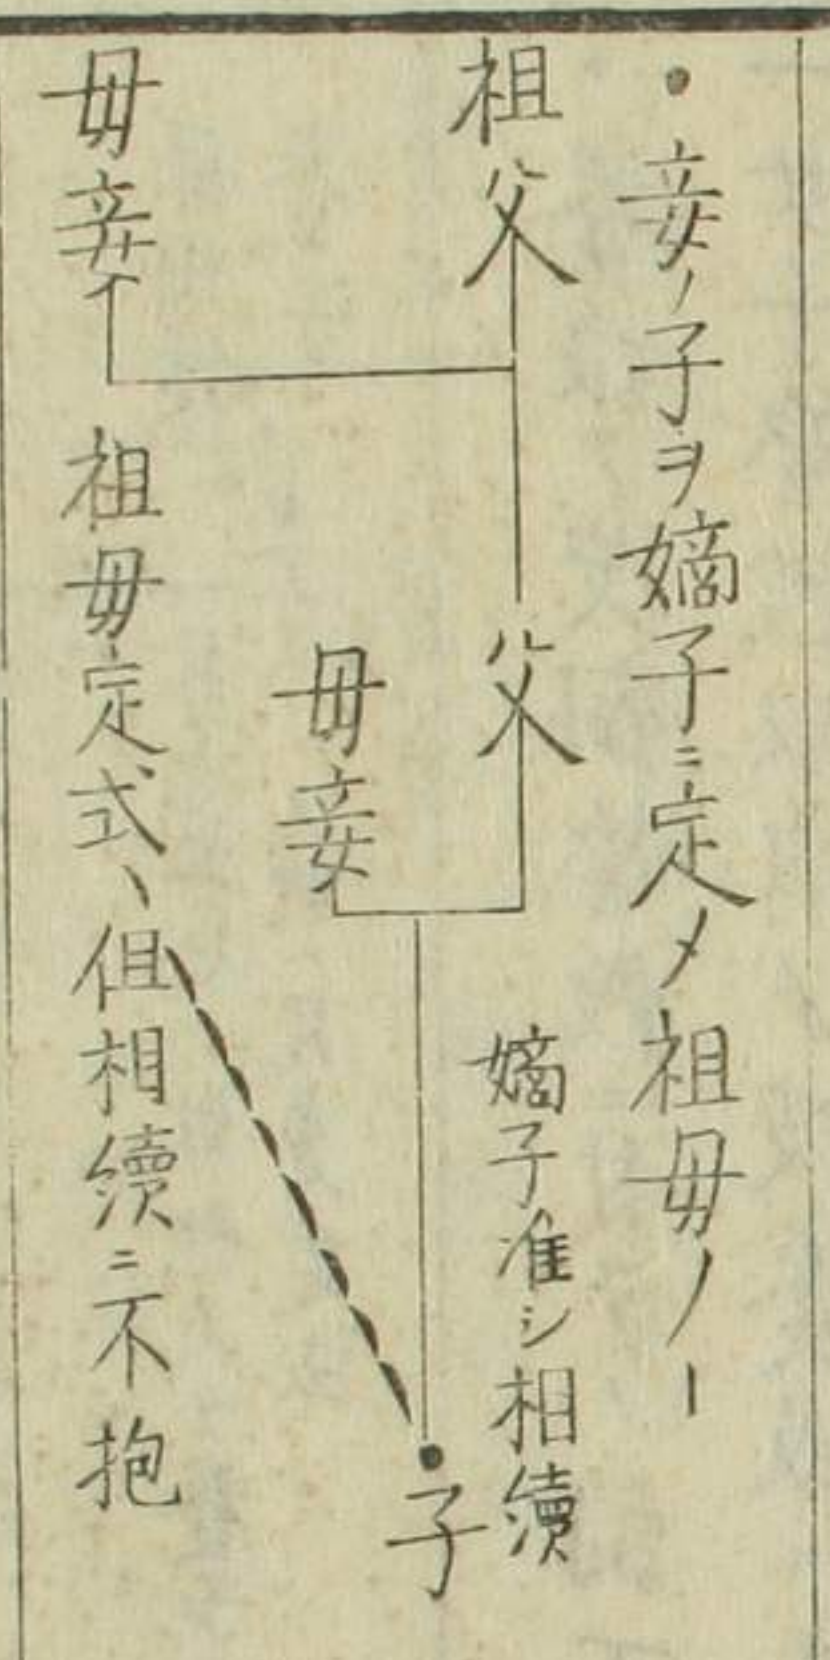 ・妾ノ子ヲ嫡子ニ定メ祖母ノヿ
祖父
父
嫡子准シ相續
子
母妾
母妾
祖母定式、但相續ニ不抱